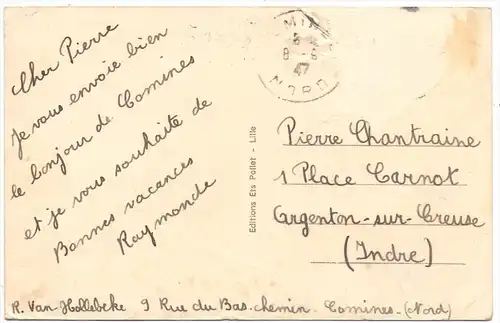 Cher Pierre
Je vous envoie bien
le bonjour de Comines
et je vous souhaite de
Bonnes vacances
Raymonde
Editions Ets Pollet - Lille
8 - 8
47
NORD
Pierre Chantraine
1 Place Carnot
Argenton-sur-Creuse
(Indre)
R. Van-Hollebeke 9 Rue du Bas-chemin. Comines-(Nord)